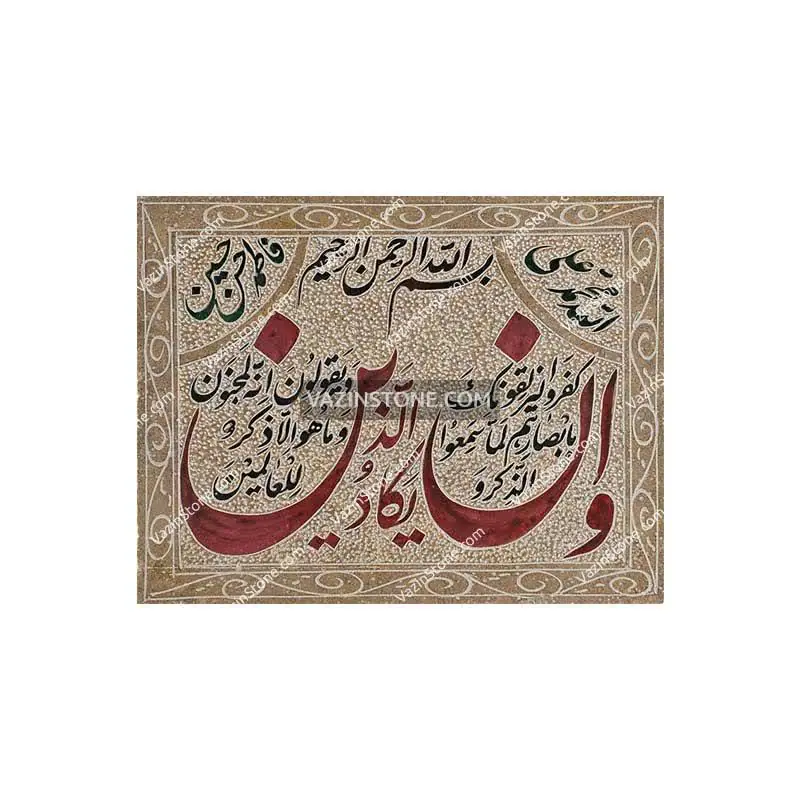 بسم الله الرحمن الرحیم
الله محمد علی
فاطمه حسن حسین
وان یکاد الذین
کفروا لیزلقونک
بابصارهم لما سمعوا
الذکر و
یقولون انه لمجنون
وما هو الا ذکر
للعالمین
VAZINSTONE.COM
VazinStone.com